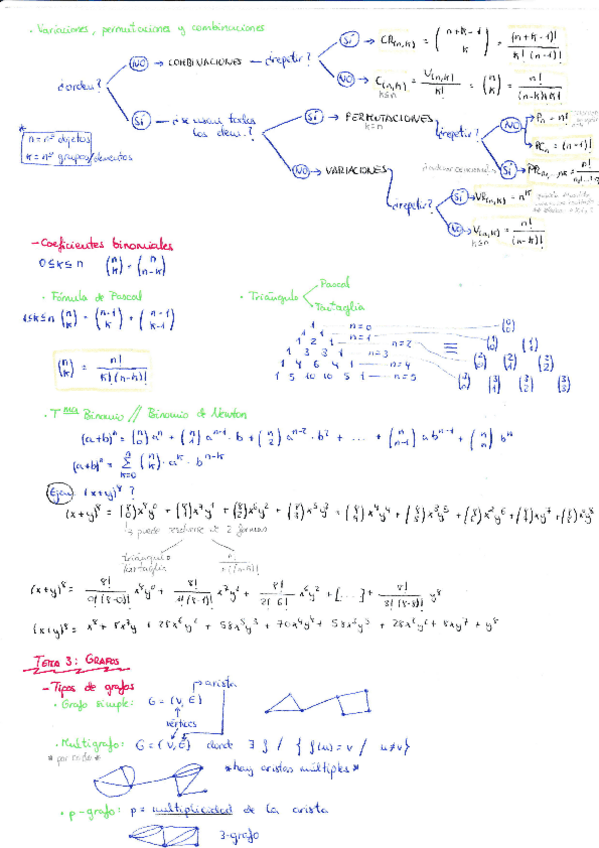 · Variaciones, permutaciones y combinaciones
¿orden?
NO → COMBINACIONES — ¿repetir?
SÍ → CR(n,k) = (n+k-1 k) = (n+k-1)! / k!(n-1)!
NO → C(n,k) = V(n,k) / k! = (n k) = n! / (n-k)!k!
k≤n
SÍ — ¿se usan todos los elem.?
SÍ → PERMUTACIONES
k=n
¿repetir?
NO → Pn = n!
PCn = (n-1)!
SÍ → PR
NO → VARIACIONES
¿repetir?
SÍ → VR(n,k) = n^k
NO → V(n,k) = n! / (n-k)!
k≤n
* n = nº objetos
k = nº grupos/elementos
- Coeficientes binomiales
0≤k≤n (n k) = (n n-k)
· Fórmula de Pascal
1≤k≤n (n k) = (n-1 k) + (n-1 k-1)
(n k) = n! / k!(n-k)!
· Triángulo Pascal
Tartaglia
1 1 n=0 (0 0)
1 2 1 n=1 n=2 (1 0) (1 1)
1 3 3 1 n=3 (2 0) (2 1) (2 2)
1 4 6 4 1 n=4 (3 0) (3 1) (3 2) (3 3)
1 5 10 10 5 1 n=5
· Tma Binomio // Binomio de Newton
(a+b)^n = (n 0) a^n + (n 1) a^n-1 · b + (n 2) a^n-2 · b² + ... + (n n-1) a b^n-1 + (n n) b^n
(a+b)^n = Σ k=0 n (n k) · a^k · b^n-k
Ejem: (x+y)^8 ?
(x+y)^8 = (8 0)x^8y^0 + (8 1)x^7y^1 + (8 2)x^6y^2 + (8 3)x^5y^3 + (8 4)x^4y^4 + (8 5)x^3y^5 + (8 6)x^2y^6 + (8 7)xy^7 + (8 8)x^0y^8
↳ puede resolverse de 2 formas
triángulo Tartaglia
n! / k!(n-k)!
(x+y)^8 = 8! / 0!(8-0)! x^8y^0 + 8! / 1!(8-1)! x^7y^1 + 8! / 2! 6! x^6y^2 + [...] + 8! / 8!(8-8)! y^8
(x+y)^8 = x^8 + 8x^7y + 28x^6y^2 + 58x^5y^3 + 70x^4y^4 + 58x^3y^5 + 28x^2y^6 + 8xy^7 + y^8
TEMA 3: GRAFOS
- Tipos de grafos
→ arista
· Grafo simple: G = {V, E}
vértices
· Multigrafo: G = {V, E} donde ∃ f / { f(u) = v / u≠v}
* hay aristas múltiples *
· p-grafo: p = multiplicidad de la arista
3-grafo